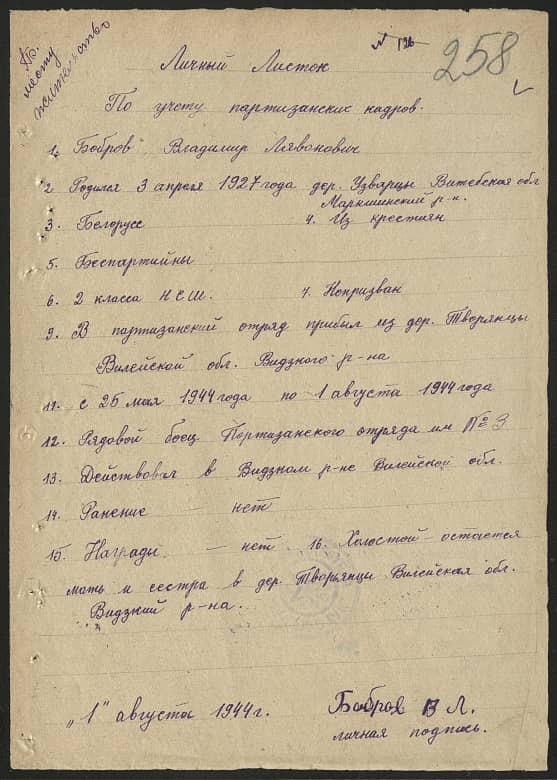 По
месту
жительство
№ 126
258
Личный Листок
По учету партизанских кадров.
1. Бобров Владимир Лявонович
2 Родился 3 апреля 1927 года дер. Узвярцы Витебская обл
р-н.
3. Белорусс 4. Из крестиян
5. Беспартийны
6. 2 класса НСШ. 7. Непризван
9. В партизанский отряд прибыл из дер. Творянцы
Вилейской обл. Видзкого р-на
11. с 25 мая 1944 года по 1 августа 1944 года
12. Рядовой боец Портизанского отряда им № 3
13. Действовал в Видзком р-не Вилейской обл.
14. Ранение — нет
15. Награды — нет 16. Холостой — остается
мать и сестра в дер. Творянцы Вилейская обл.
Видзкий р-на.
„1" августа 1944 г. Бобров В Л.
личная подпись.